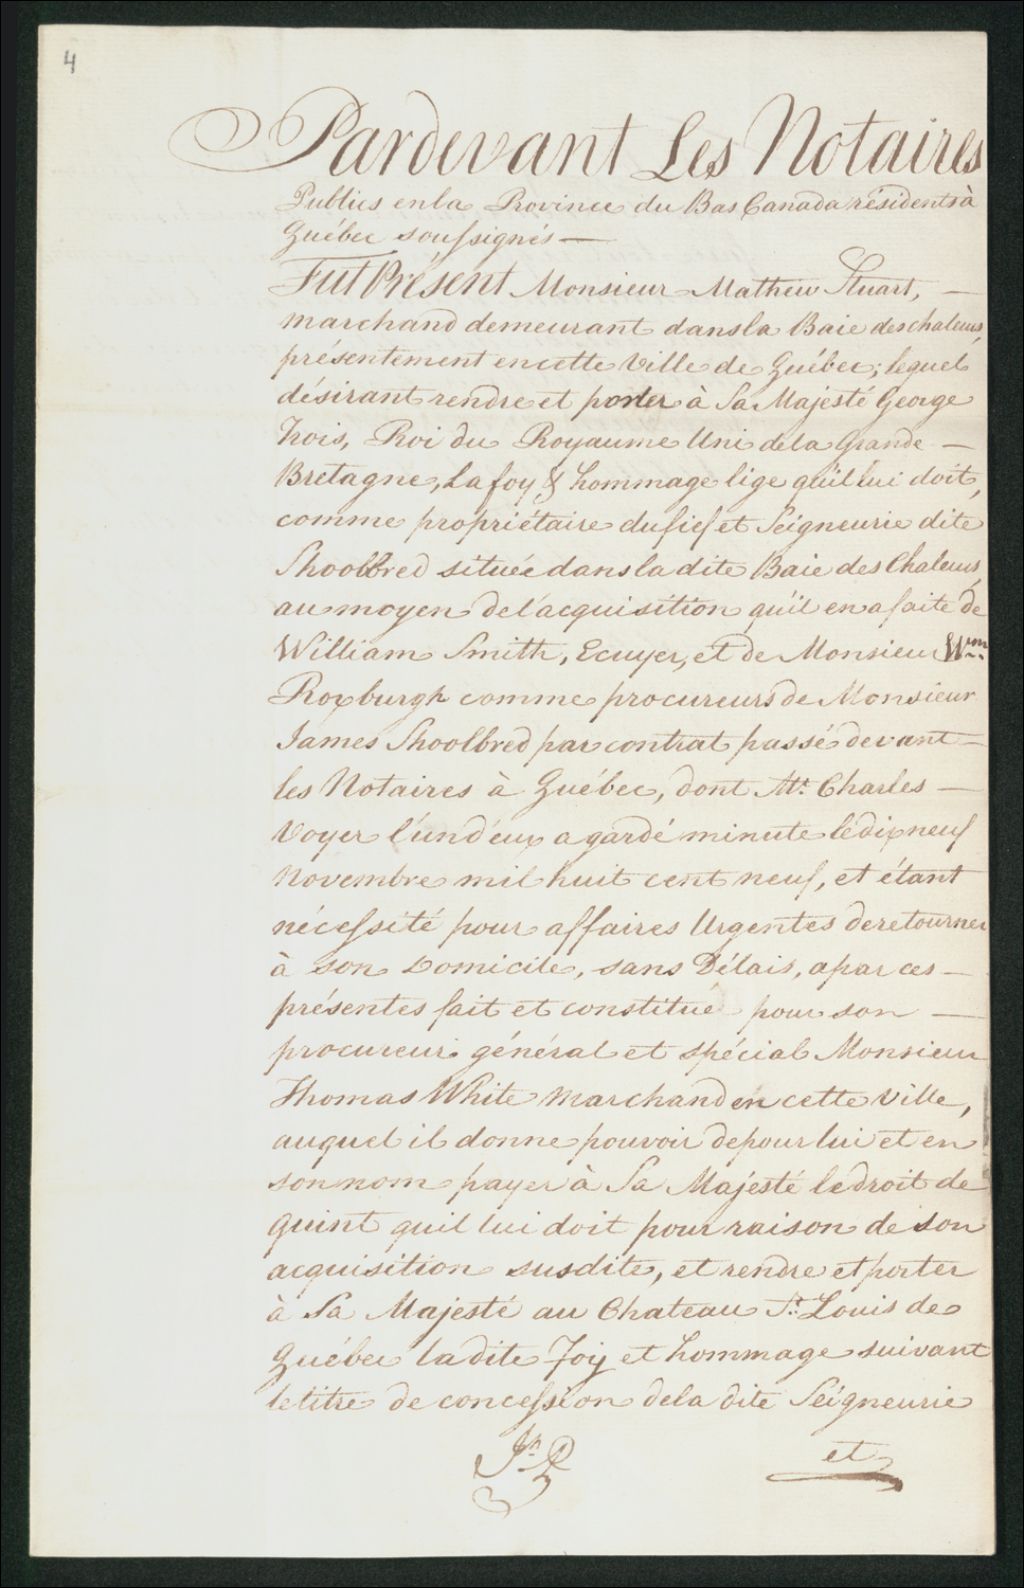 4
Pardevant Les Notaires
Publics en la Province du Bas Canada résidents à
Québec soussignés —
Fut Présent Monsieur Mathew Stuart, —
marchand demeurant dans la Baie des chaleurs,
présentement en cette Ville de Québec; lequel
désirant rendre et porter à Sa Majesté George
Trois, Roi du Royaume Uni de la Grande —
Bretagne, La foy & hommage lige qu'il lui doit,
comme propriétaire du fief et Seigneurie dite
Shoolbred située dans la dite Baie des Chaleurs,
au moyen de l'acquisition qu'il en a faite de
William Smith, Ecuyer, et de Monsieur Wm
Roxburgh comme procureurs de Monsieur
James Shoolbred par contrat passé devant —
les Notaires à Québec, dont Mr. Charles —
Voyer l'un d'eux a gardé minute le dix neuf
Novembre mil huit cent neuf, et étant
nécessité pour affaires Urgentes de retourner
à son Domicile, sans Délais, a par ces —
présentes fait et constitué pour son —
procureur général et spécial Monsieur
Thomas White Marchand en cette Ville,
auquel il donne pouvoir de pour lui et en
son nom payer à Sa Majesté le droit de
Quint quil lui doit pour raison de son
acquisition susdite, et rendre et porter
à Sa Majesté au Chateau St. Louis de
Québec la dite Foy et hommage suivant
le titre de concession de la dite Seigneurie
et